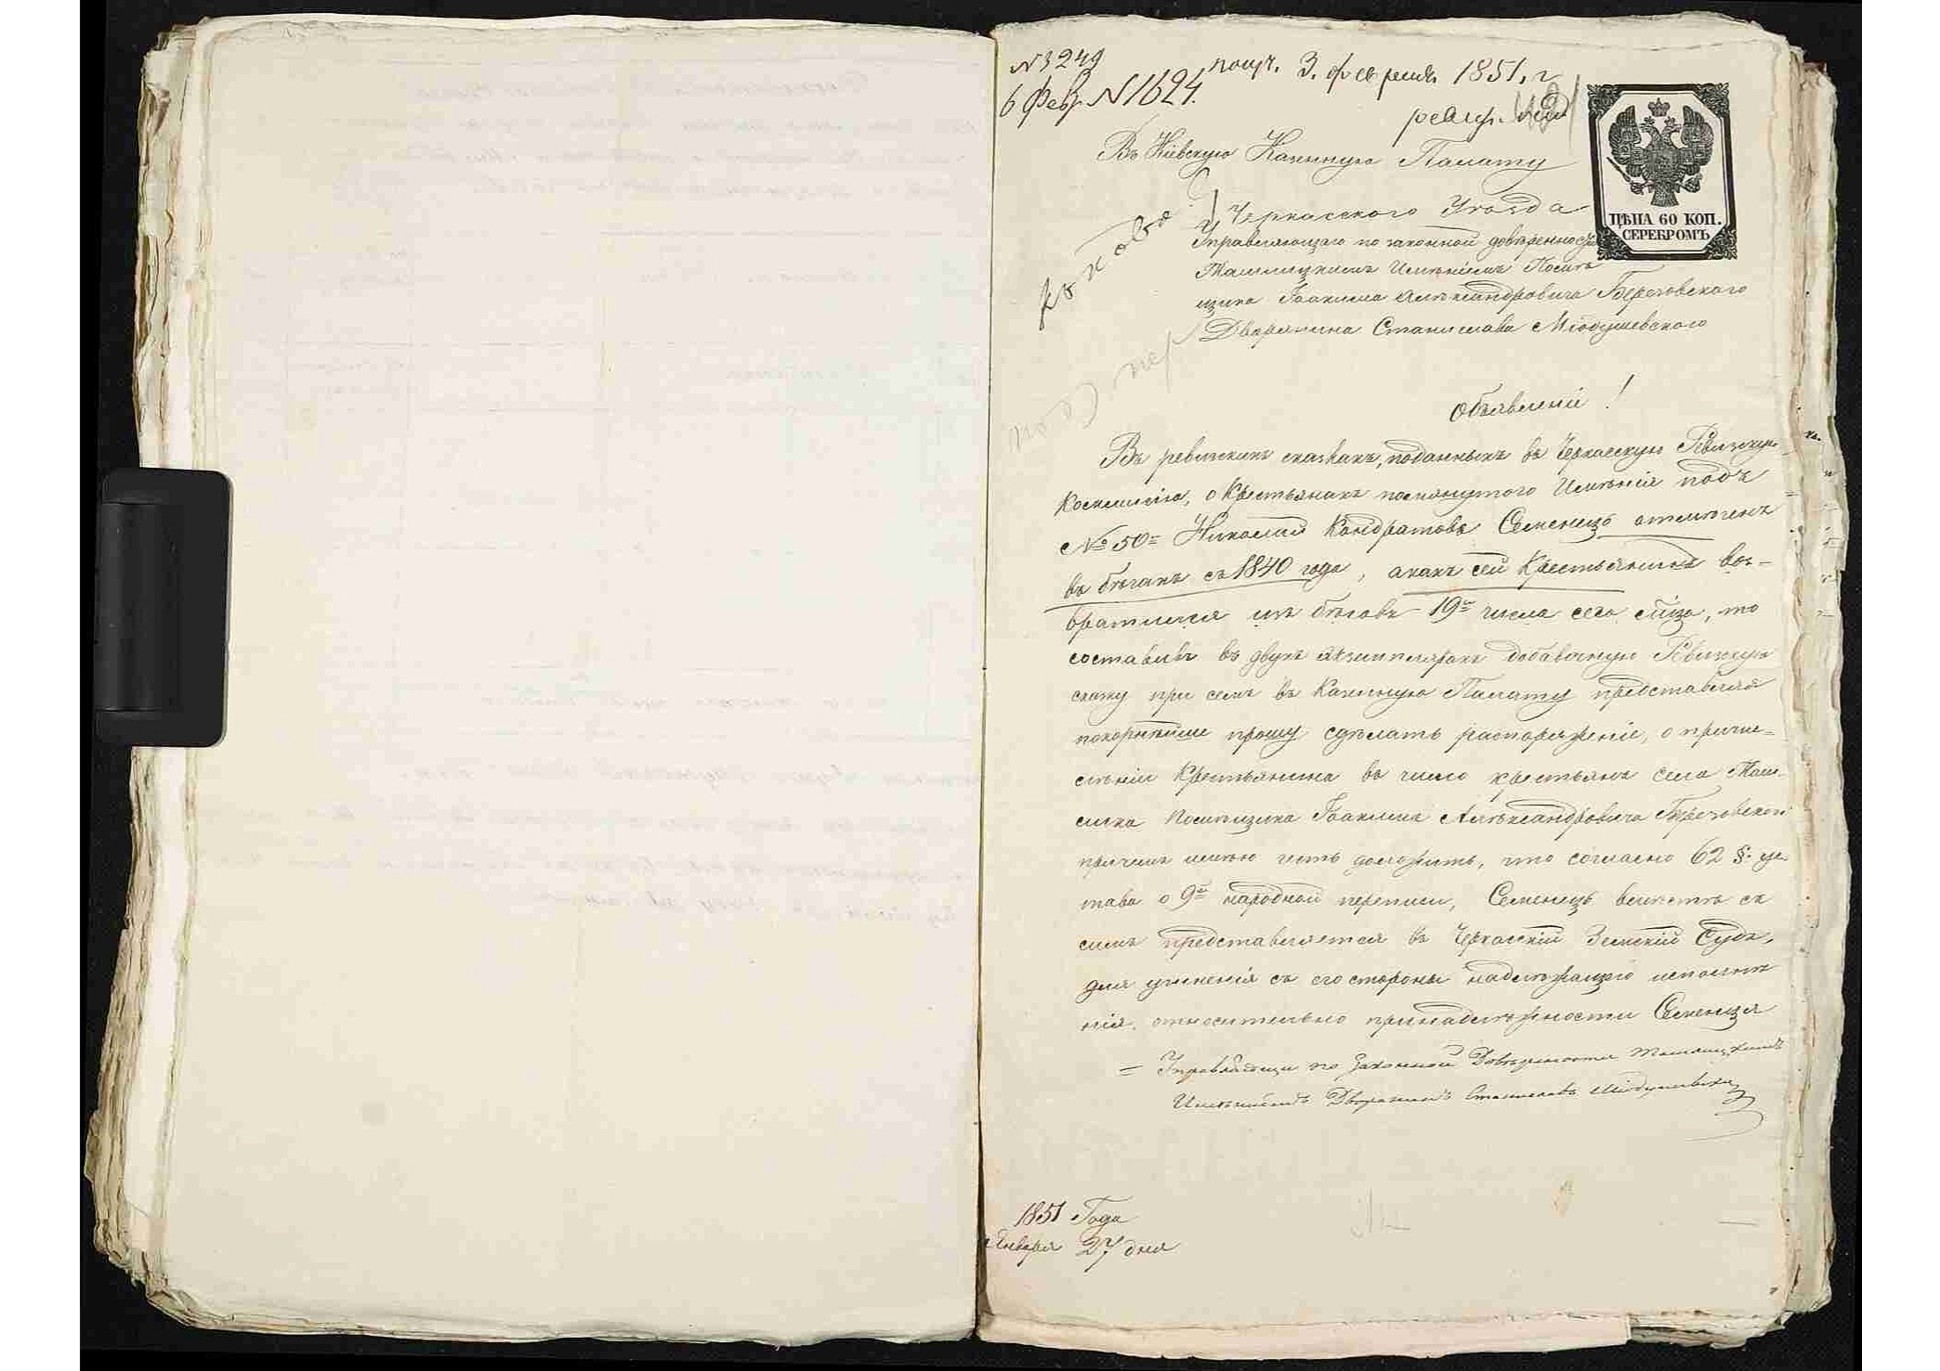 № 3249
6 Февр № 1624.
получ. 3. февраля 1851. г
ревиз.
Въ Кіевскую Казенную Палату
Черкасского Уѣзда
Управляющаго по законной довѣренности
Ташлицкимъ Имѣніемъ Помѣ
щика Іоакима Александровича Березовскаго
Дворянина Станислава Міодушевского
ЦѢНА 60 КОП.
СЕРЕБРОМЪ
Объявленіе!
Въ ревизскихъ сказкахъ, поданныхъ въ Черкасскую Ревизскую
Коммисію, о Крестьянахъ помянутого Имѣнія подъ
№ 50= Николай Кондратовъ Семенецъ отмѣченъ
въ бѣгахъ съ 1840 года, а какъ сей Крестьянинъ воз=
вратился изъ бѣговъ 19го числа сего м-ца, то
составивъ въ двухъ экземплярахъ добавочную Ревизскую
сказку при семъ въ Казенную Палату представляя
покорнѣйше прошу сдѣлать распоряженіе, о причи=
сленіи Крестьянина въ число крестьянъ села Таш-
лика Помѣщика Іоакима Александровича Березовского
причемъ имѣю честь доложить, что согласно 62 §. ус
тава о 9й народной переписи, Семенецъ вмѣстѣ съ
симъ представляется въ Черкасскій Земскій Судъ,
для учиненія съ его стороны надлежащего исполне
нія, относительно принадлежности Семенца
= Управляющій по Законной Довѣренности Ташлицкимъ
Имѣніемъ Дворянинъ Станиславъ Міодушевскій
1851 Года
Января 27 дня